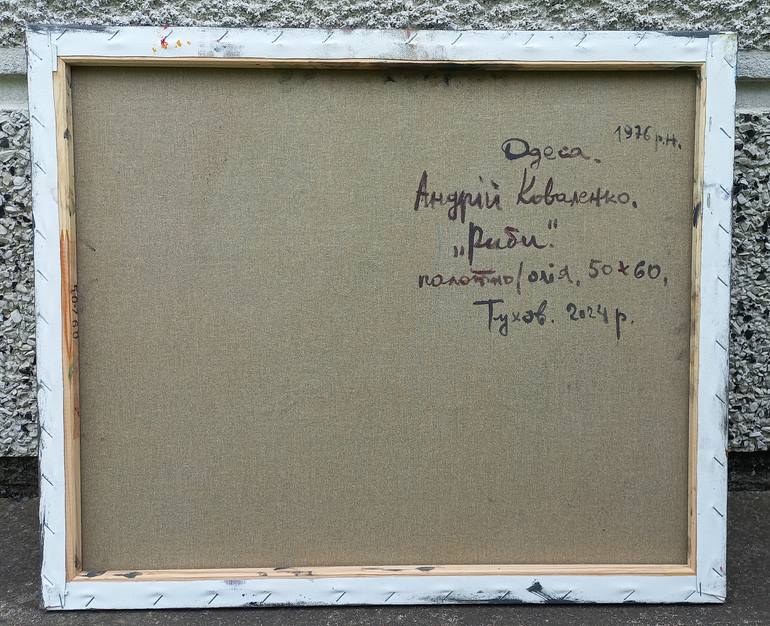 1976 р.н.
Одеса.
Андрій Коваленко.
„Риби."
полотно/олія, 50х60,
Тухов. 2024 р.
50×60